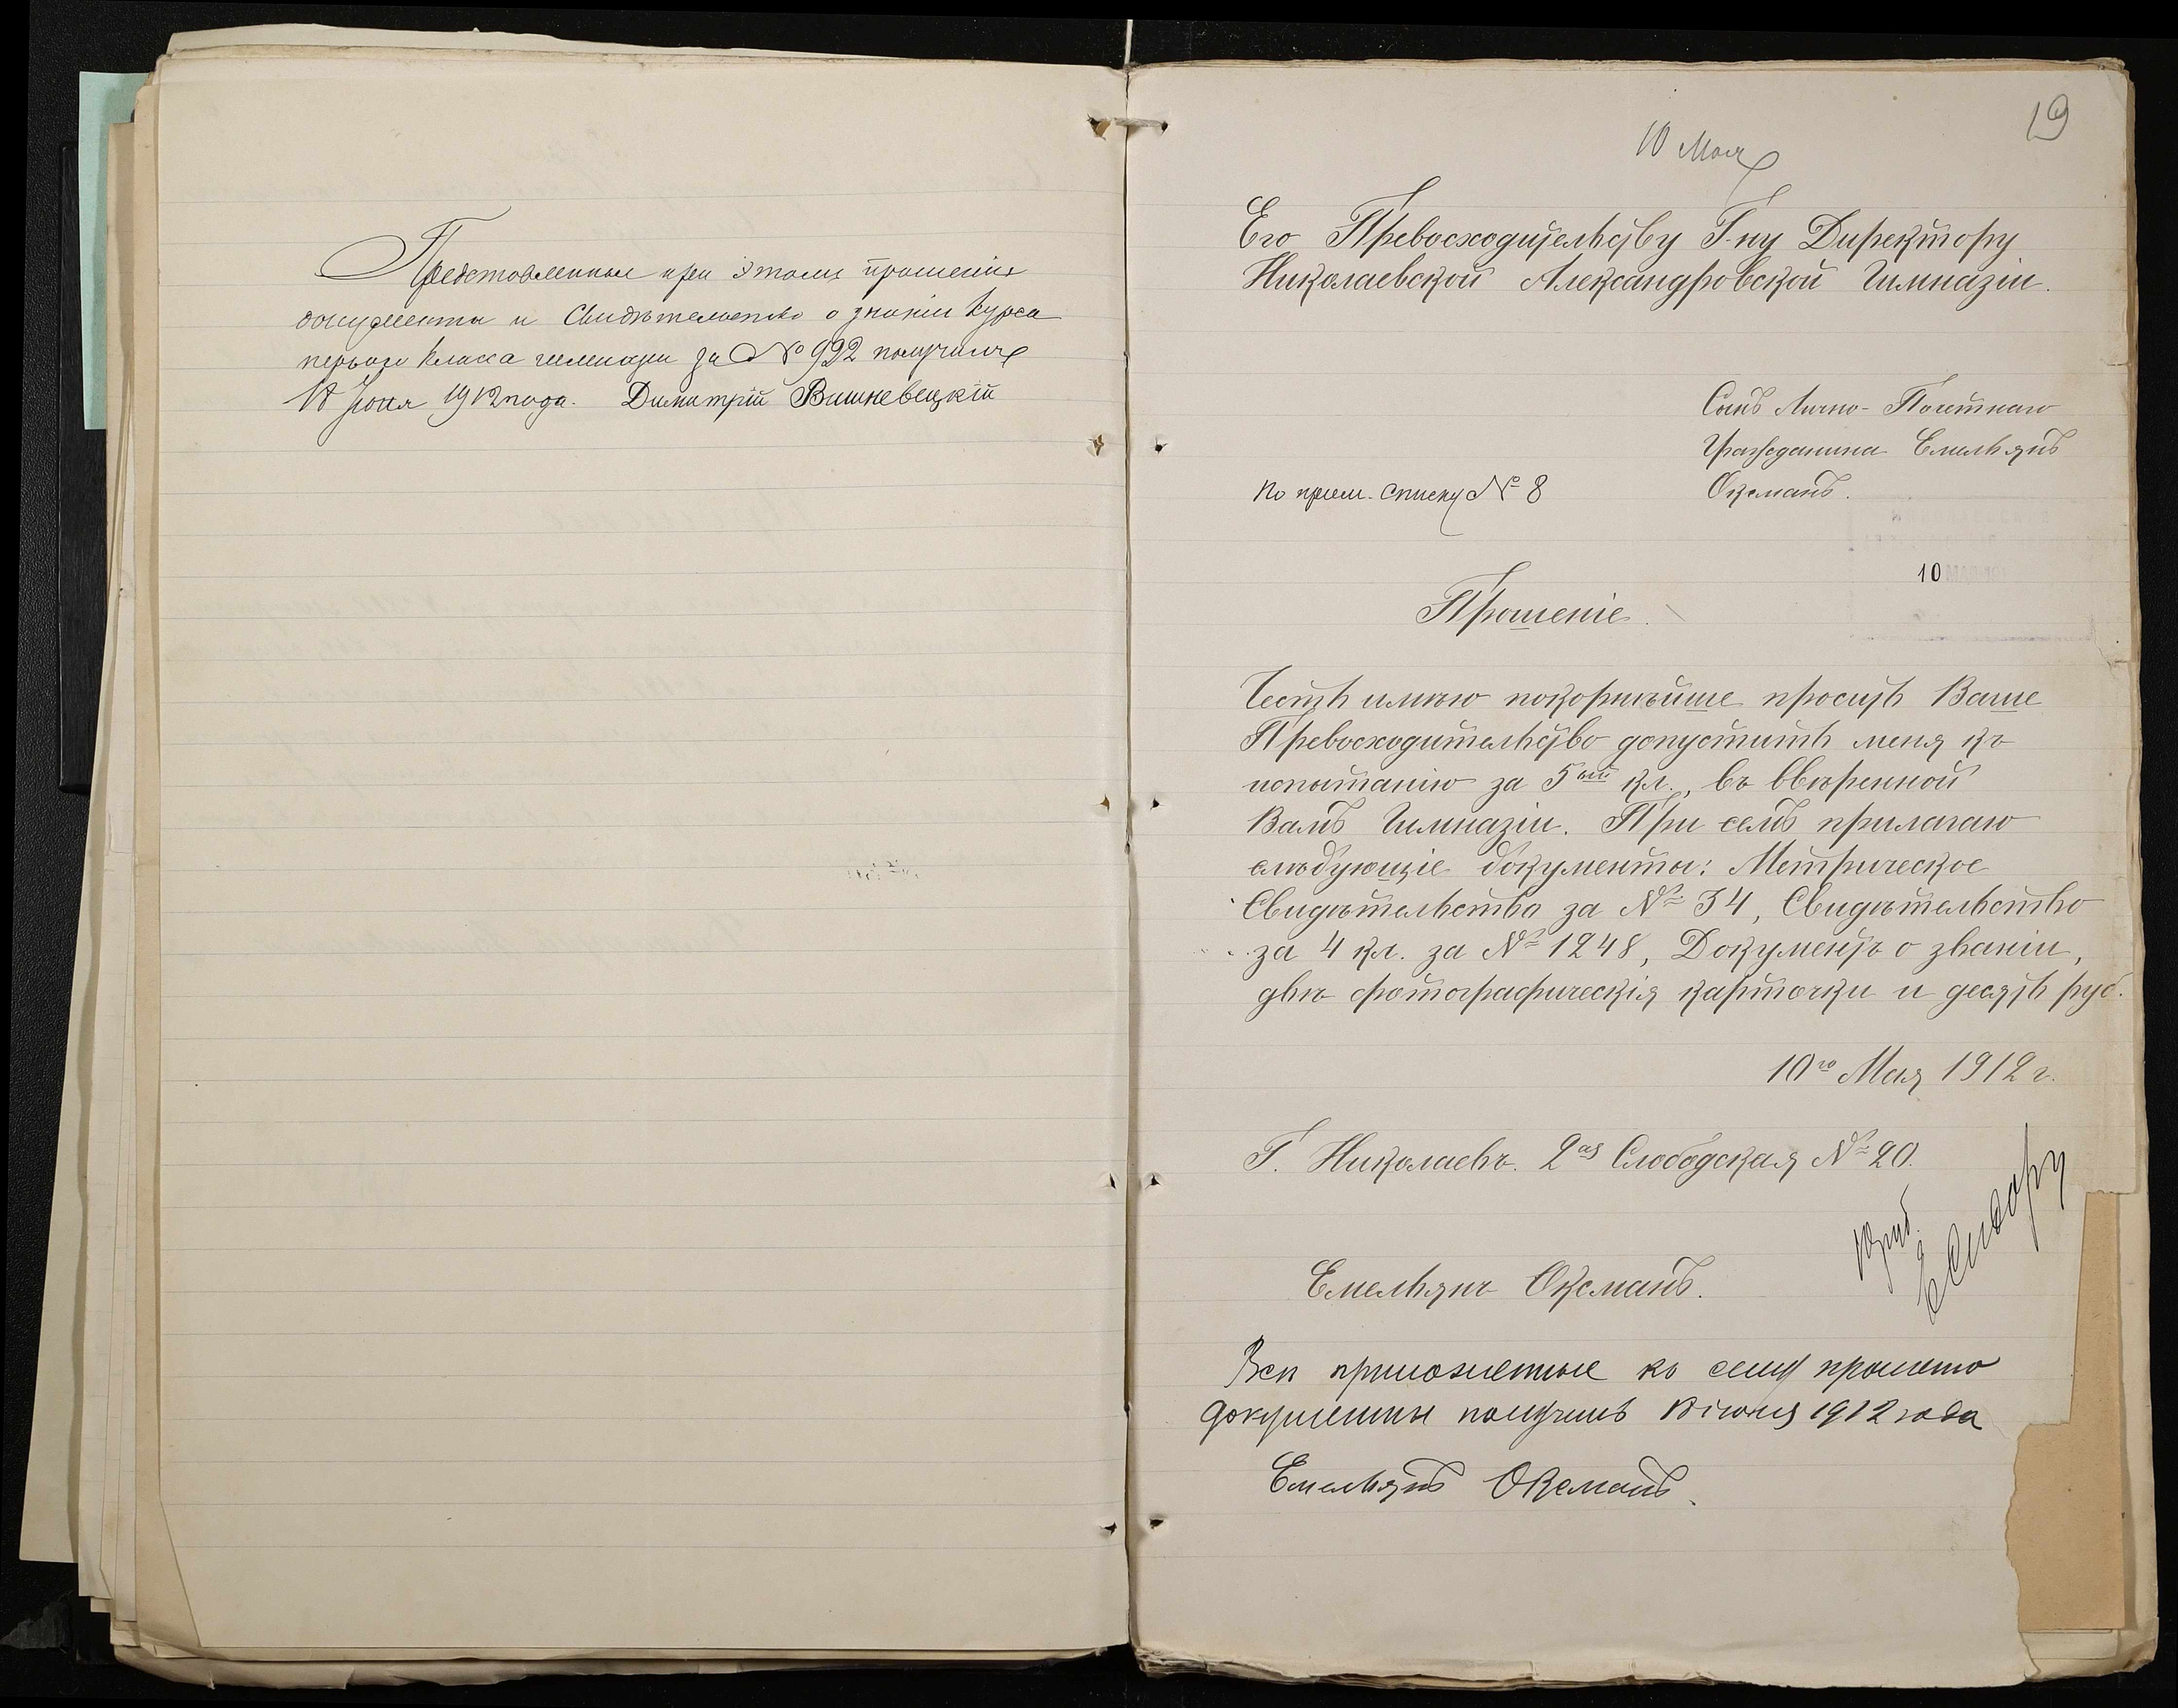 Представленныя при этомъ прошеніи
документы и Свидѣтельство о знаніи курса
перваго класса гимназіи за № 992 получилъ
18 Іюня 1912 года. Димитрій Вишневецкій
19
10 Мая
Его Превосходительству Г-ну Директору
Николаевской Александровской Гимназіи.
Сынъ Лично-Почетнаго
Гражданина Емельянъ
Оксманъ.
По прием. списку № 8
10
Прошеніе.
Честь имѣю покорнѣйше просить Ваше
Превосходительство допустить меня къ
испытанію за 5ый кл., въ ввѣренной
Вамъ Гимназіи. При семъ прилагаю
слѣдующіе документы: Метрическое
Свидѣтельство за № 34, Свидѣтельство
за 4 кл. за № 1248, Документъ о званіи,
двѣ фотографическія карточки и десять руб.
10го Мая 1912 г.
Г. Николаевъ. 2ая Слободская № 20.
10 руб.
Емельянъ Оксманъ.
Всѣ приложенные къ сему прошенію
документы получилъ 18 іюня 1912 года
Емельянъ Оксманъ.